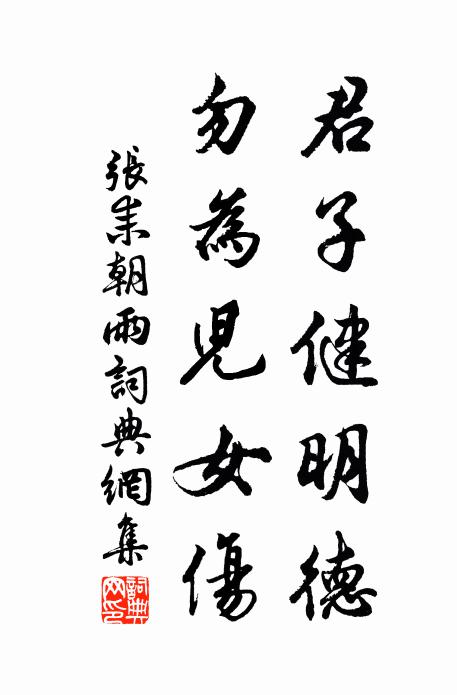 君子健明德
勿為兒女傷
張耒朝雨詞典網集
詞典網印